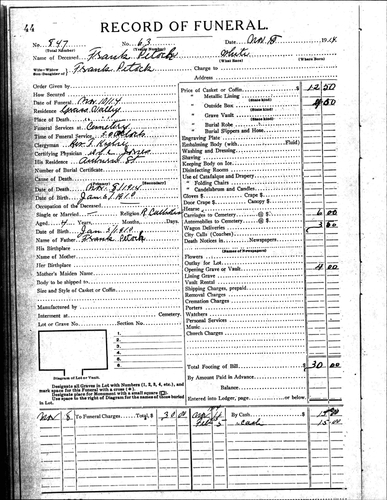 44
RECORD OF FUNERAL.
No. 847 No. 63 Date Nov 8 1914
Name of Deceased Frank
White
Wife—Widow
Son-Daughter of Frank
Charge to
Address
Order Given by
How Secured
Date of Funeral Nov 1914
Residence Grass Valley
Place of Death
Funeral Services at Cemetery
Time of Funeral Service
Clergyman Rev.
Certifying Physician Jones
His Residence Auburn St
Number of Burial Certificate
Cause of Death
Date of Death Nov. 8/1914
Date of Birth Jan 5/1910
Occupation of the Deceased
Single or Married Religion R. Catholic
Aged 4 Years Months, Days.
Date of Birth Jan 5/1910
Name of Father Frank
His Birthplace
Name of Mother
Her Birthplace
Mother's Maiden Name
Body to be shipped to
Size and Style of Casket or Coffin
Manufactured by
Interment at Cemetery.
Lot or Grave No. Section No.
1
2
3
4
5
6
Diagram of Lot or Vault.
Designate all Graves in Lot with Numbers (1, 2, 3, 4, etc.), and
mark space for this Funeral with a cross (+).
Designate place for Monument with a small square (□).
Use space to right of Diagram for the names of those buried
in Lot.
Price of Casket or Coffin $ 12 50
" Metallic Lining
(State Kind)
" Outside Box 4 50
(State Kind)
" Grave Vault
(State Kind)
" Burial Robe
(State Kind)
" Burial Slippers and Hose
Engraving Plate
Embalming Body (with Fluid)
Washing and Dressing
Shaving
Keeping Body on Ice
Disinfecting Rooms
Use of Catafalque and Drapery
" Folding Chairs
" Candelabrum and Candles
Gloves $ Crape $
Door Crape $ Canopy $
Hearse
Carriages to Cemetery @ $ 6 00
Automobiles to Cemetery @ $
Wagon Deliveries 3 00
City Calls (Coaches)
Death Notices in Newspapers
(Names of Newspapers)
Flowers
Outlay for Lot
Opening Grave or Vault 4 00
Lining Grave
Vault Rental
Shipping Charges, prepaid
Removal Charges
Cremation Charges
Porters
Watchers
Personal Services
Music
Church Charges
Total Footing of Bill $ 30 00
By Amount Paid in Advance
Balance
Entered into Ledger, page or below.
Nov 8 To Funeral Charges Total $ 30 00 By Cash
Feb 5 " cash 15 00